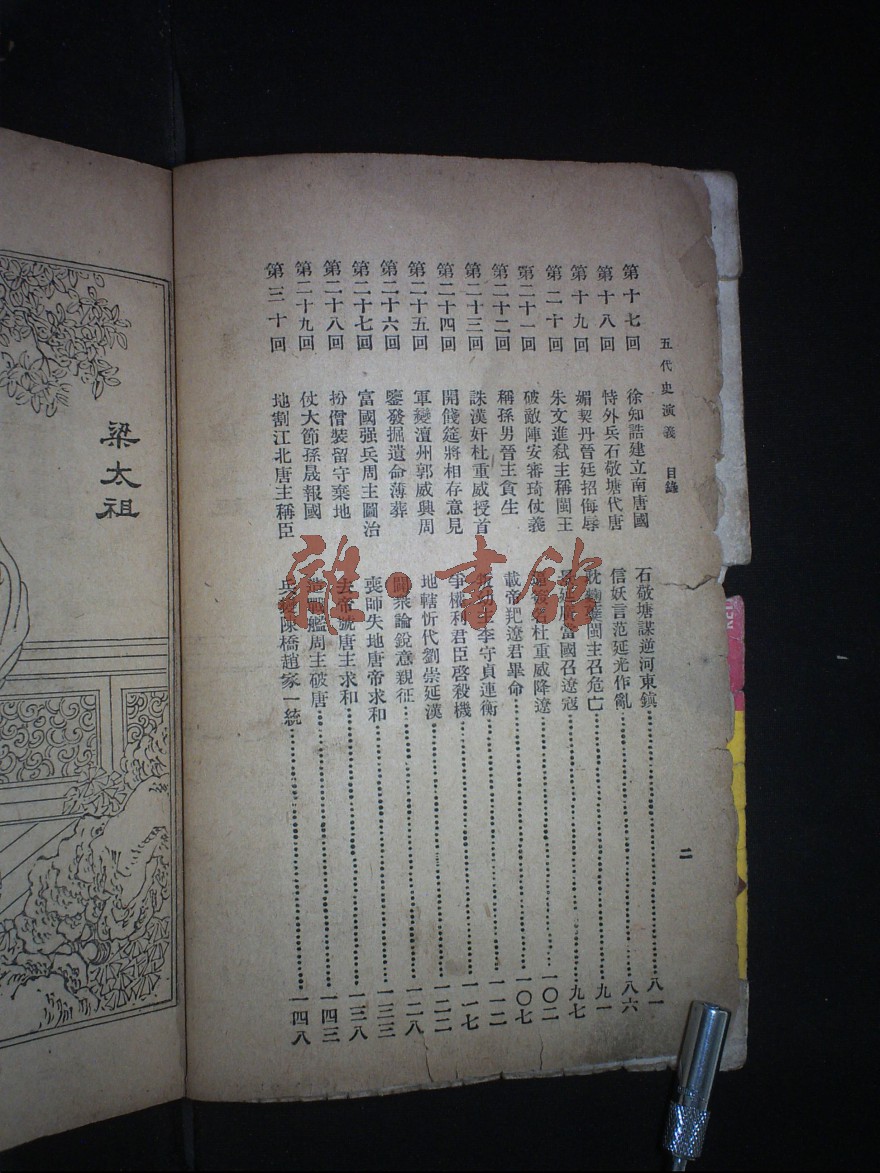 五代史演義 目錄
第十七回 徐知誥建立南唐國 石敬塘謀逆河東鎮 八一
第十八回 恃外兵石敬塘代唐 信妖言范延光作亂 八六
第十九回 媚契丹晉廷招侮辱 閩主召危亡 九一
第二十回 朱文進弒主稱閩王 富國召遼寇 九七
第二十一回 破敵陣安審琦仗義 杜重威降遼 一〇二
第二十二回 稱孫男晉主貪生 載帝羓遼君畢命 一〇七
第二十三回 誅漢奸杜重威授首 李守貞連衡 一一二
第二十四回 開餞筵將相存意見 爭權利君臣啓殺機 一一七
第二十五回 軍變澶州郭威興周 地轄忻代劉崇延漢 一二二
第二十六回 鑒發掘遺命薄葬 闢衆論銳意親征 一二八
第二十七回 富國强兵周主圖治 喪師失地唐帝求和 一三三
第二十八回 扮僧裝留守棄地 去帝號唐主求和 一三八
第二十九回 仗大節孫晟報國 造戰艦周主破唐 一四三
第三十回 地割江北唐主稱臣 兵變陳橋趙家一統 一四八
二
梁太祖
雜·書館